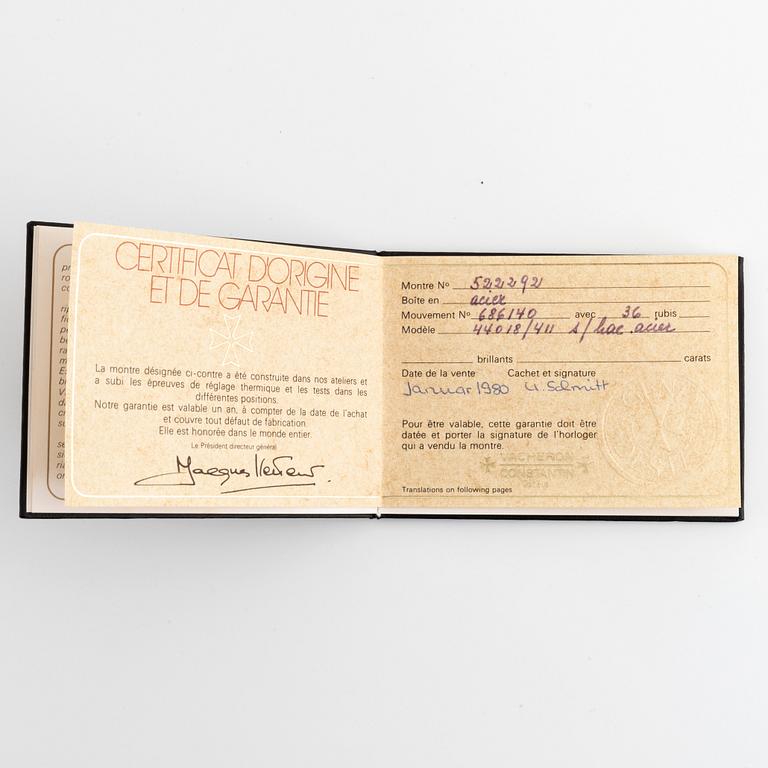 CERTIFICAT D'ORIGINE
ET DE GARANTIE
La montre désignée ci-contre a été construite dans nos ateliers et
a subi les épreuves de réglage thermique et les tests dans les
différentes positions.
Notre garantie est valable un an, à compter de la date de l'achat
et couvre tout défaut de fabrication.
Elle est honorée dans le monde entier.
Le Président directeur général
Montre No 522292
Boîte en acier
Mouvement No 686140 avec 36 rubis
Modèle 44018/411 s/brac. acier
brillants carats
Date de la vente Cachet et signature
Januar 1980 U. Schmitt
Pour être valable, cette garantie doit être
datée et porter la signature de l'horloger
qui a vendu la montre.
VACHERON
CONSTANTIN
Translations on following pages